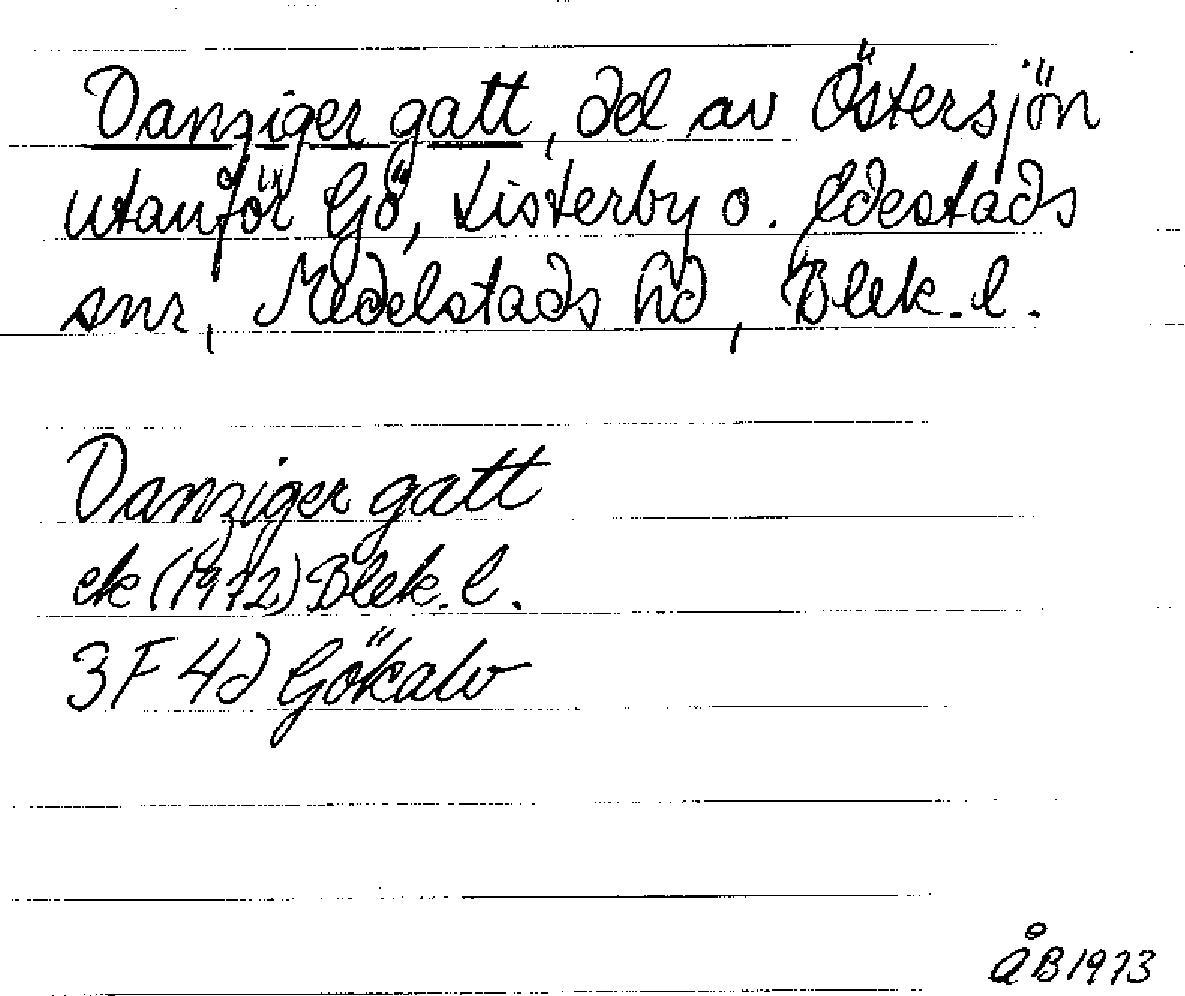 Danziger gatt, del av Östersjön
utanför Gö, Listerby o. Edestads
snr, Medelstads hd, Blek. l.
Danziger gatt
ek (1972) Blek. l.
3F 4d Gökalv
ÅB 1973